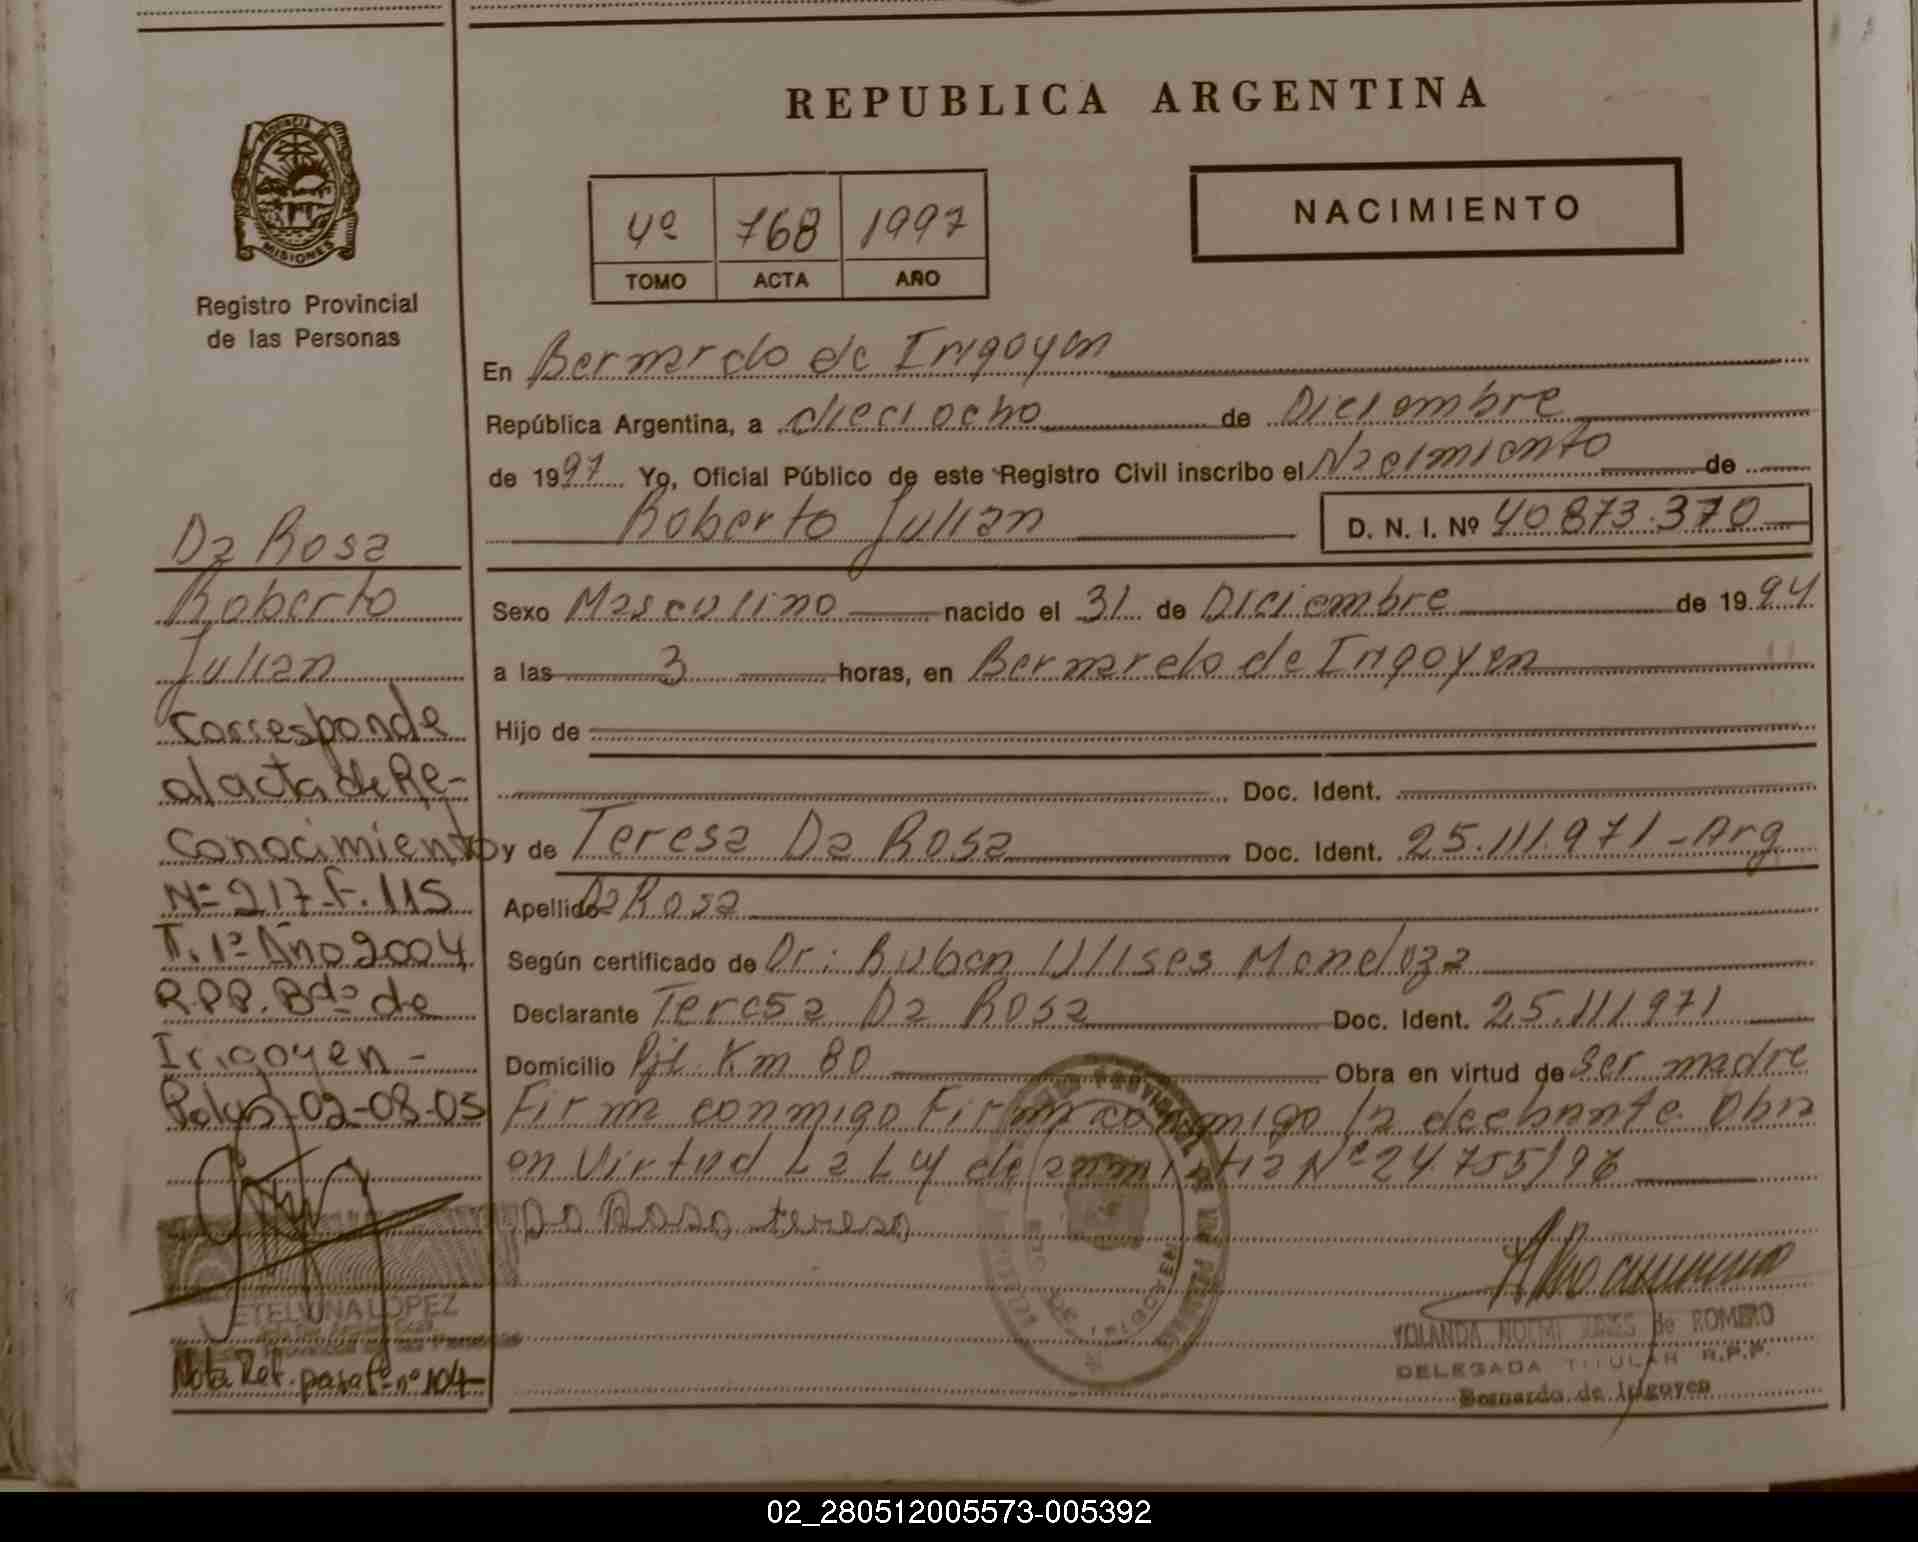 REPUBLICA ARGENTINA
PROVINCIA DE
MISIONES
Registro Provincial
de las Personas
4º 768 1997
TOMO ACTA AÑO
NACIMIENTO
En Bernardo de Irigoyen
República Argentina, a dieciocho de Diciembre
de 1997 Yo, Oficial Público de este Registro Civil inscribo el Nacimiento de
Roberto Julian D. N. I. Nº 40873.370
Sexo Masculino nacido el 31 de Diciembre de 1994
a las 3 horas, en Bernardo de Irigoyen
Hijo de
Doc. Ident.
y de Teresa Da Rosa Doc. Ident. 25.111.971 - Arg
Apellido Da Rosa
Según certificado de Dr: Ruben Ulises Mendoza
Declarante Teresa Da Rosa Doc. Ident. 25.111971
Domicilio Pje Km 80 Obra en virtud de ser madre
Firma conmigo Firma conmigo la Obra
en Virtud La Ley de amnistia Nº 24.755/96
Da Rosa teresa
YOLANDA NOEMI de ROMERO
DELEGADA TITULAR R.P.P.
Bernardo de Irigoyen
Da Rosa
Roberto
Julian
Corresponde
al acta de Re-
conocimiento
Nº 217-F. 115
T. 1º Año 2004
R.P.P. Bdo de
Irigoyen -
02-08-05
ETELVINA LOPEZ
Nota Ref. pasa fº nº 104
02_280512005573-005392